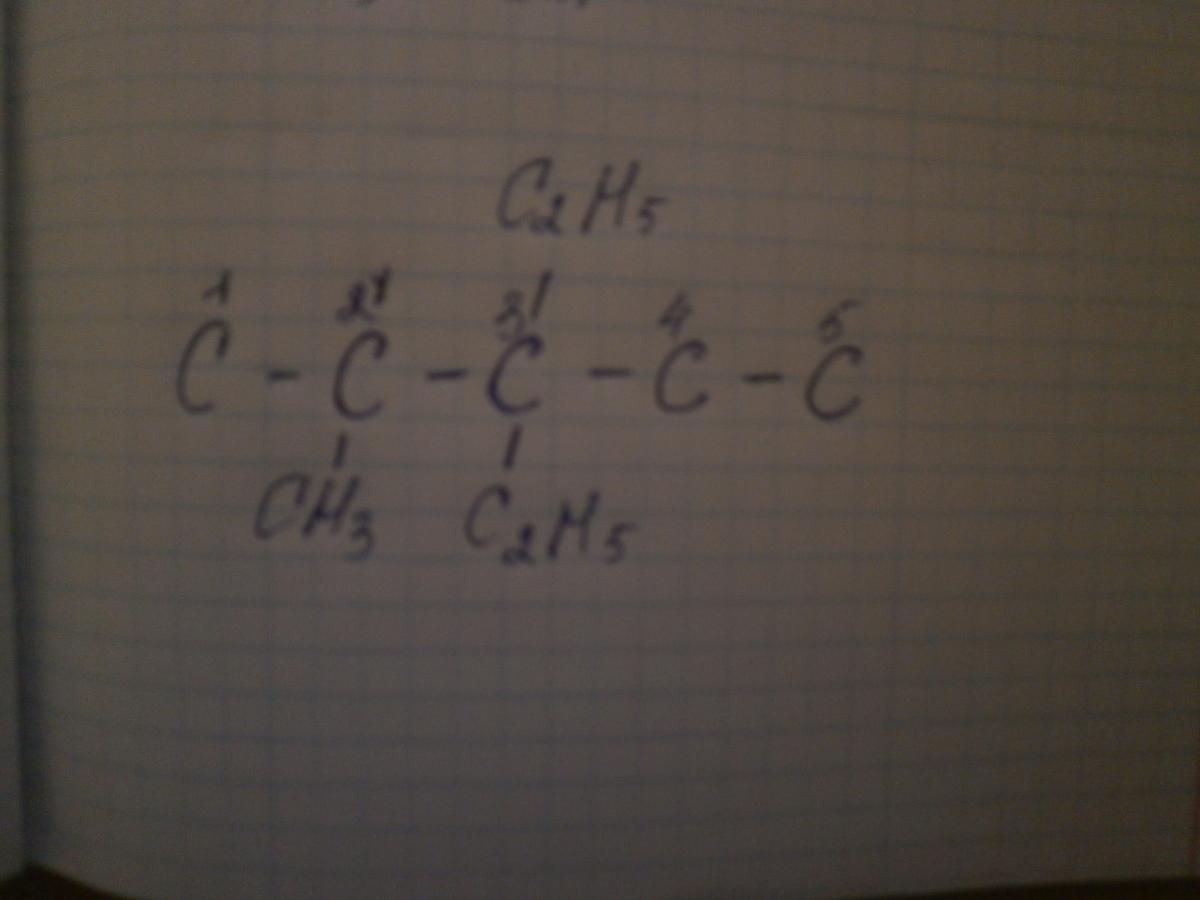 C2H5
1 2 3 4 5
C - C - C - C - C
CH3 C2H5